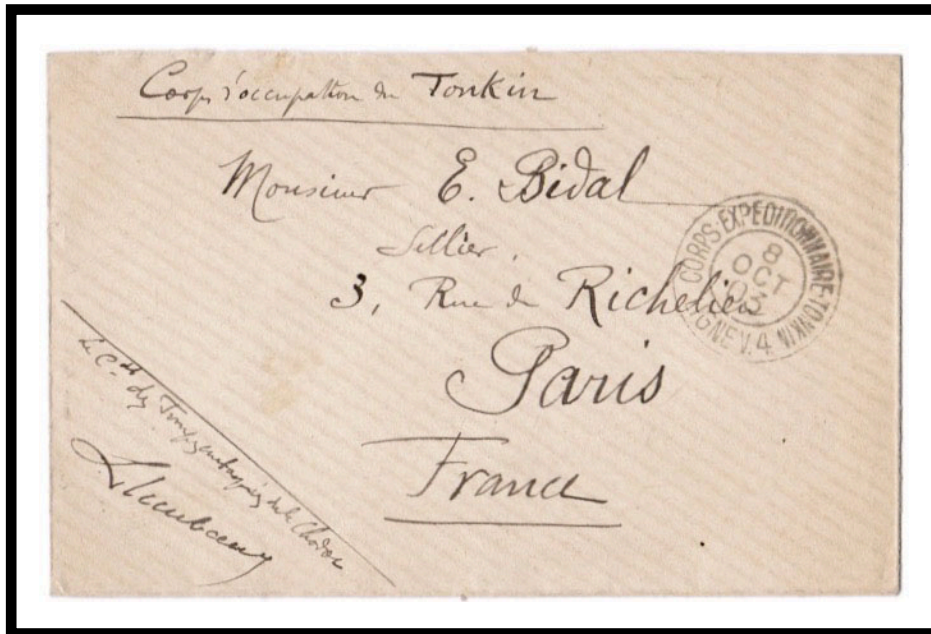 Corps d'occupation du Tonkin
Monsieur E. Bidal
Sellier.
3, Rue de Richelieu
Paris
France
CORPS-EXPEDITIONNAIRE-TONKIN
8
OCT
03
LIGNE V. 4
Le C.dt des Troupes embarquées sur le